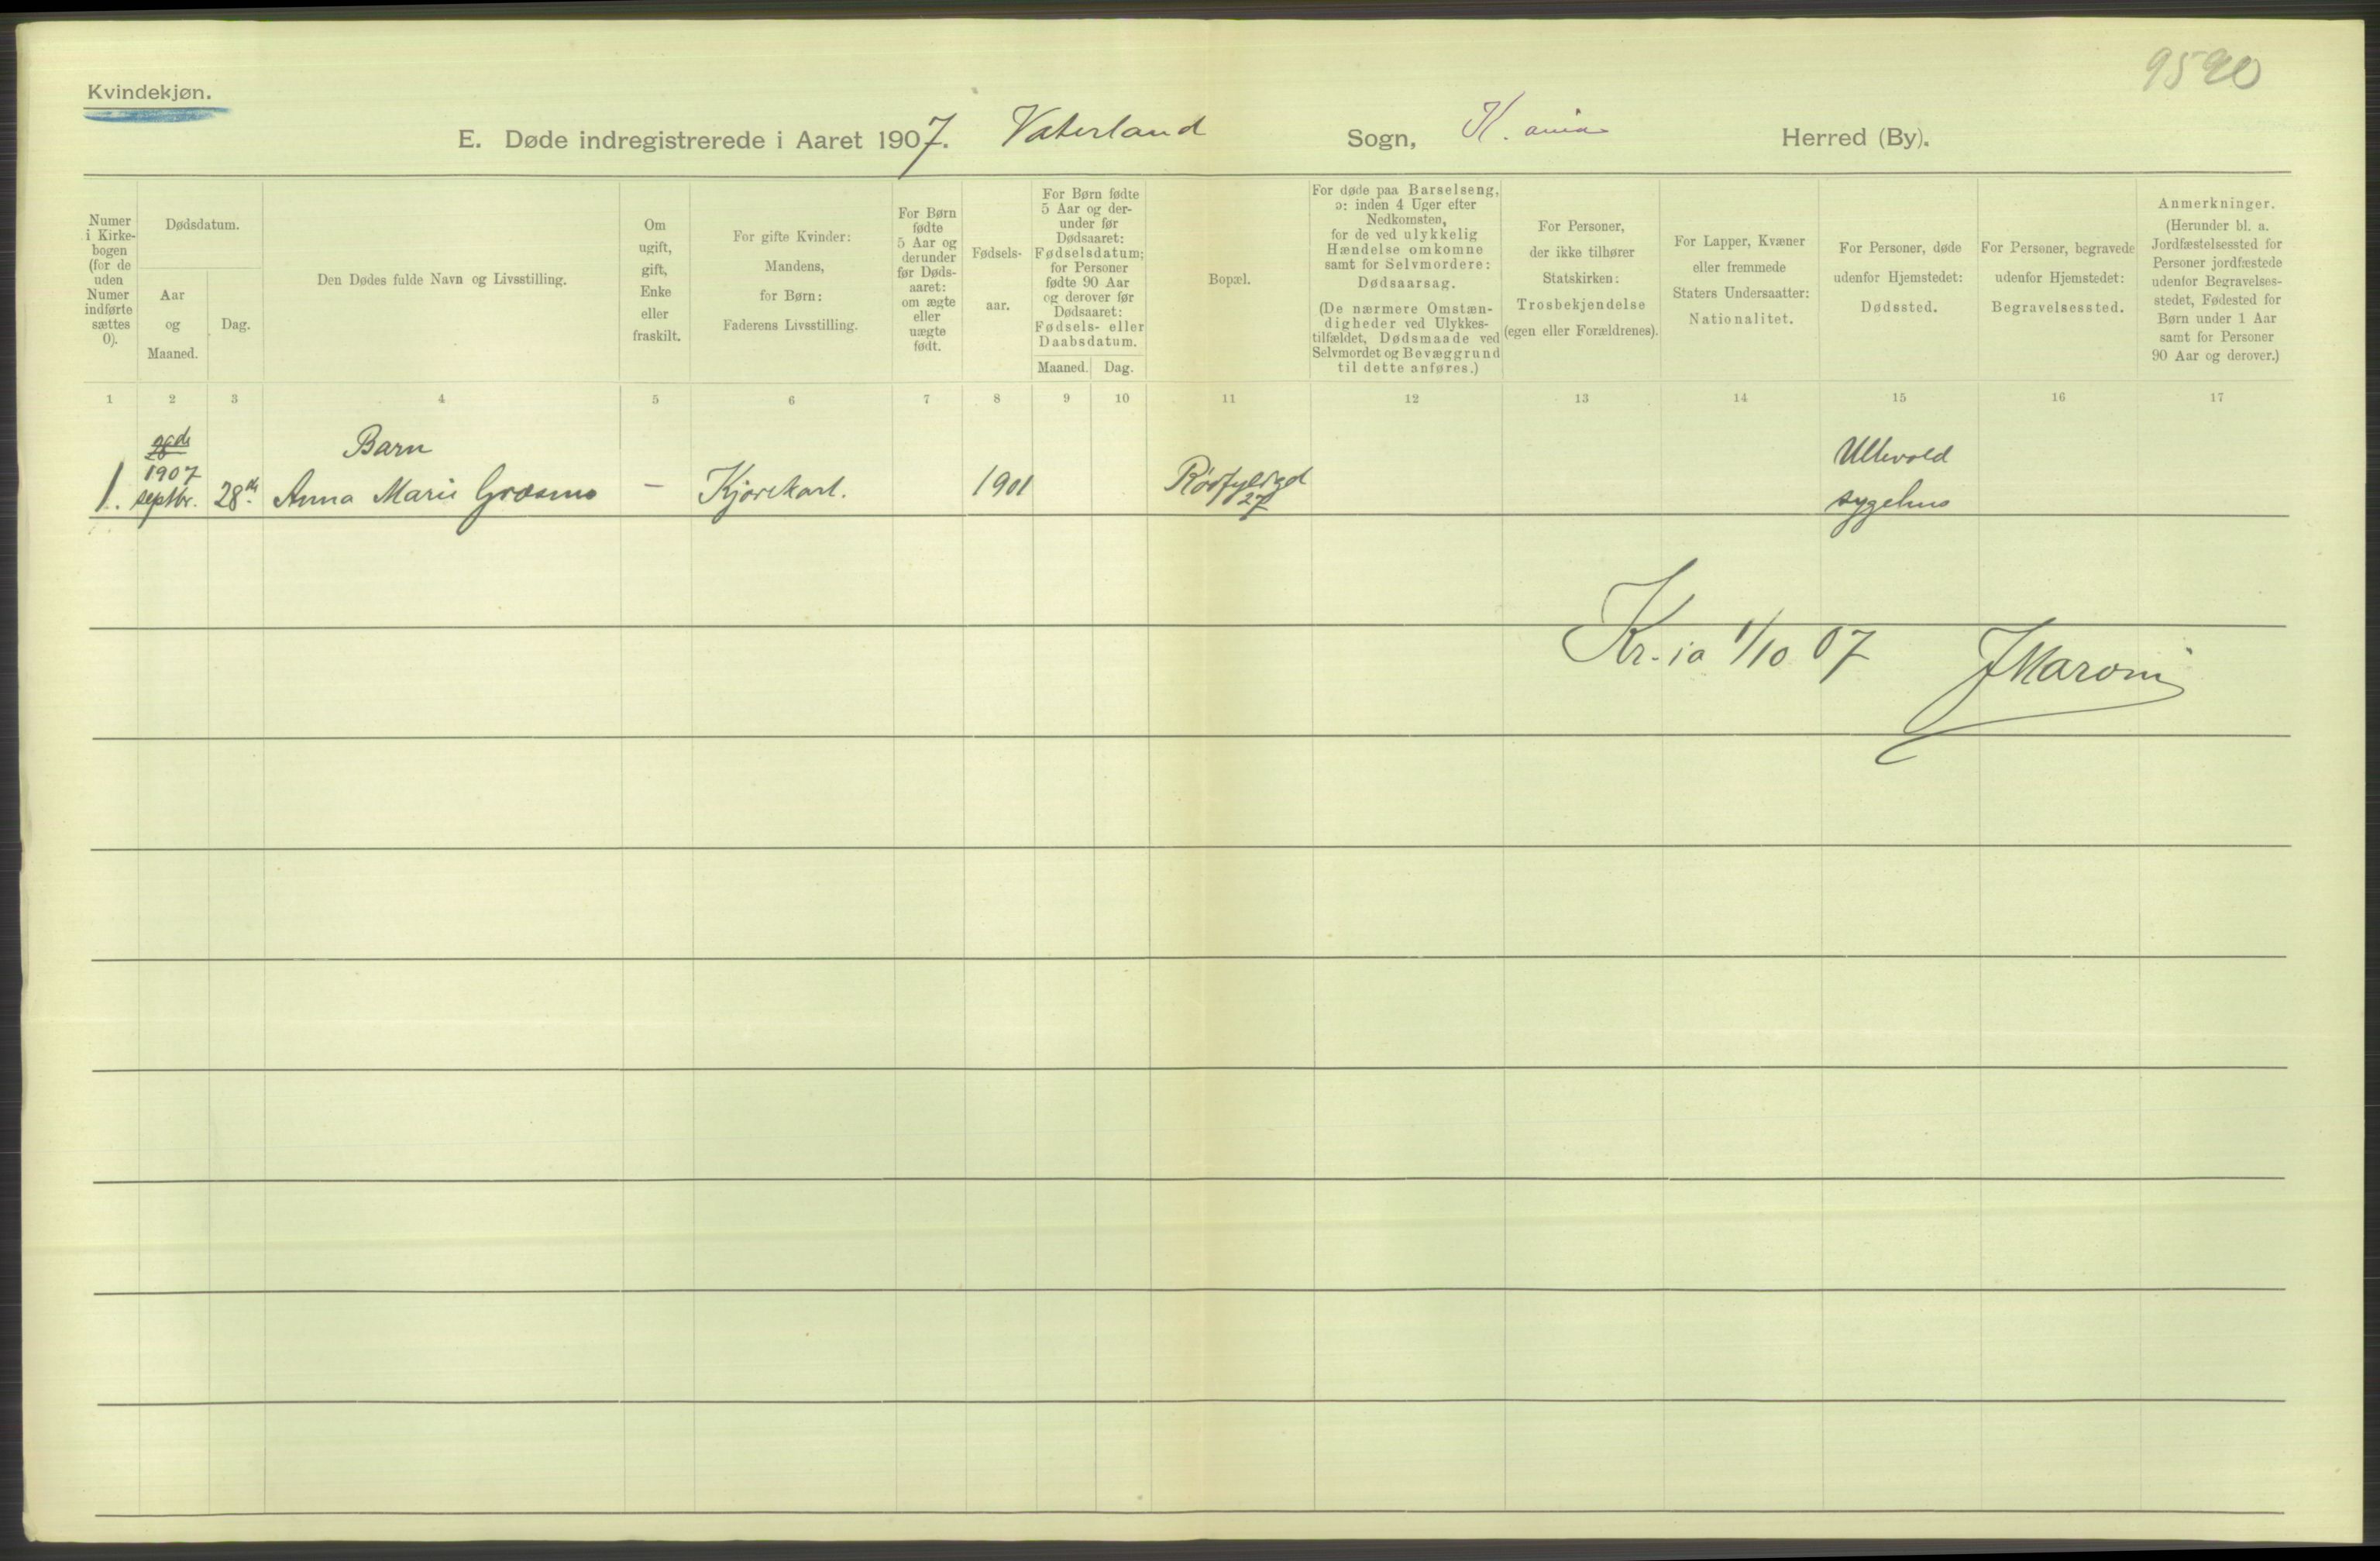 9590
Kvindekjøn.
E. Døde indregistrerede i Aaret 1907. Vaterland Sogn, K.ania Herred (By).
Numer
i Kirke-
bogen
(for de
uden
Numer
indførte
sættes
0).
Dødsdatum.
Aar
og
Maaned.
Dag.
Den Dødes fulde Navn og Livsstilling.
Om
ugift,
gift,
Enke
eller
fraskilt.
For gifte Kvinder:
Mandens,
for Børn:
Faderens Livsstilling.
For Børn
fødte
5 Aar og
derunder
før Døds-
aaret:
om ægte
eller
uægte
født.
Fødsels-
aar.
For Børn fødte
5 Aar og der-
under før
Dødsaaret:
Fødselsdatum;
for Personer
fødte 90 Aar
og derover før
Dødsaaret:
Fødsels- eller
Daabsdatum.
Maaned. Dag.
Bopæl.
For døde paa Barselseng,
ɔ: inden 4 Uger efter
Nedkomsten,
for de ved ulykkelig
Hændelse omkomne
samt for Selvmordere:
Dødsaarsag.
(De nærmere Omstæn-
digheder ved Ulykkes-
tilfældet, Dødsmaade ved
Selvmordet og Bevæggrund
til dette anføres.)
For Personer,
der ikke tilhører
Statskirken:
Trosbekjendelse
(egen eller Forældrenes).
For Lapper, Kvæner
eller fremmede
Staters Undersaatter:
Nationalitet.
For Personer, døde
udenfor Hjemstedet:
Dødssted.
For Personer, begravede
udenfor Hjemstedet:
Begravelsessted.
Anmerkninger.
(Herunder bl. a.
Jordfæstelsessted for
Personer jordfæstede
udenfor Begravelses-
stedet, Fødested for
Børn under 1 Aar
samt for Personer
90 Aar og derover.)
1 2 3 4 5 6 7 8 9 10 11 12 13 14 15 16 17
Barn Ullevold
1907
1. septbr. 28de Anna Marie Græsmo — Kjørekarl. 1901 sygehus
27
Kr.ia 1/10 07 JMaroni